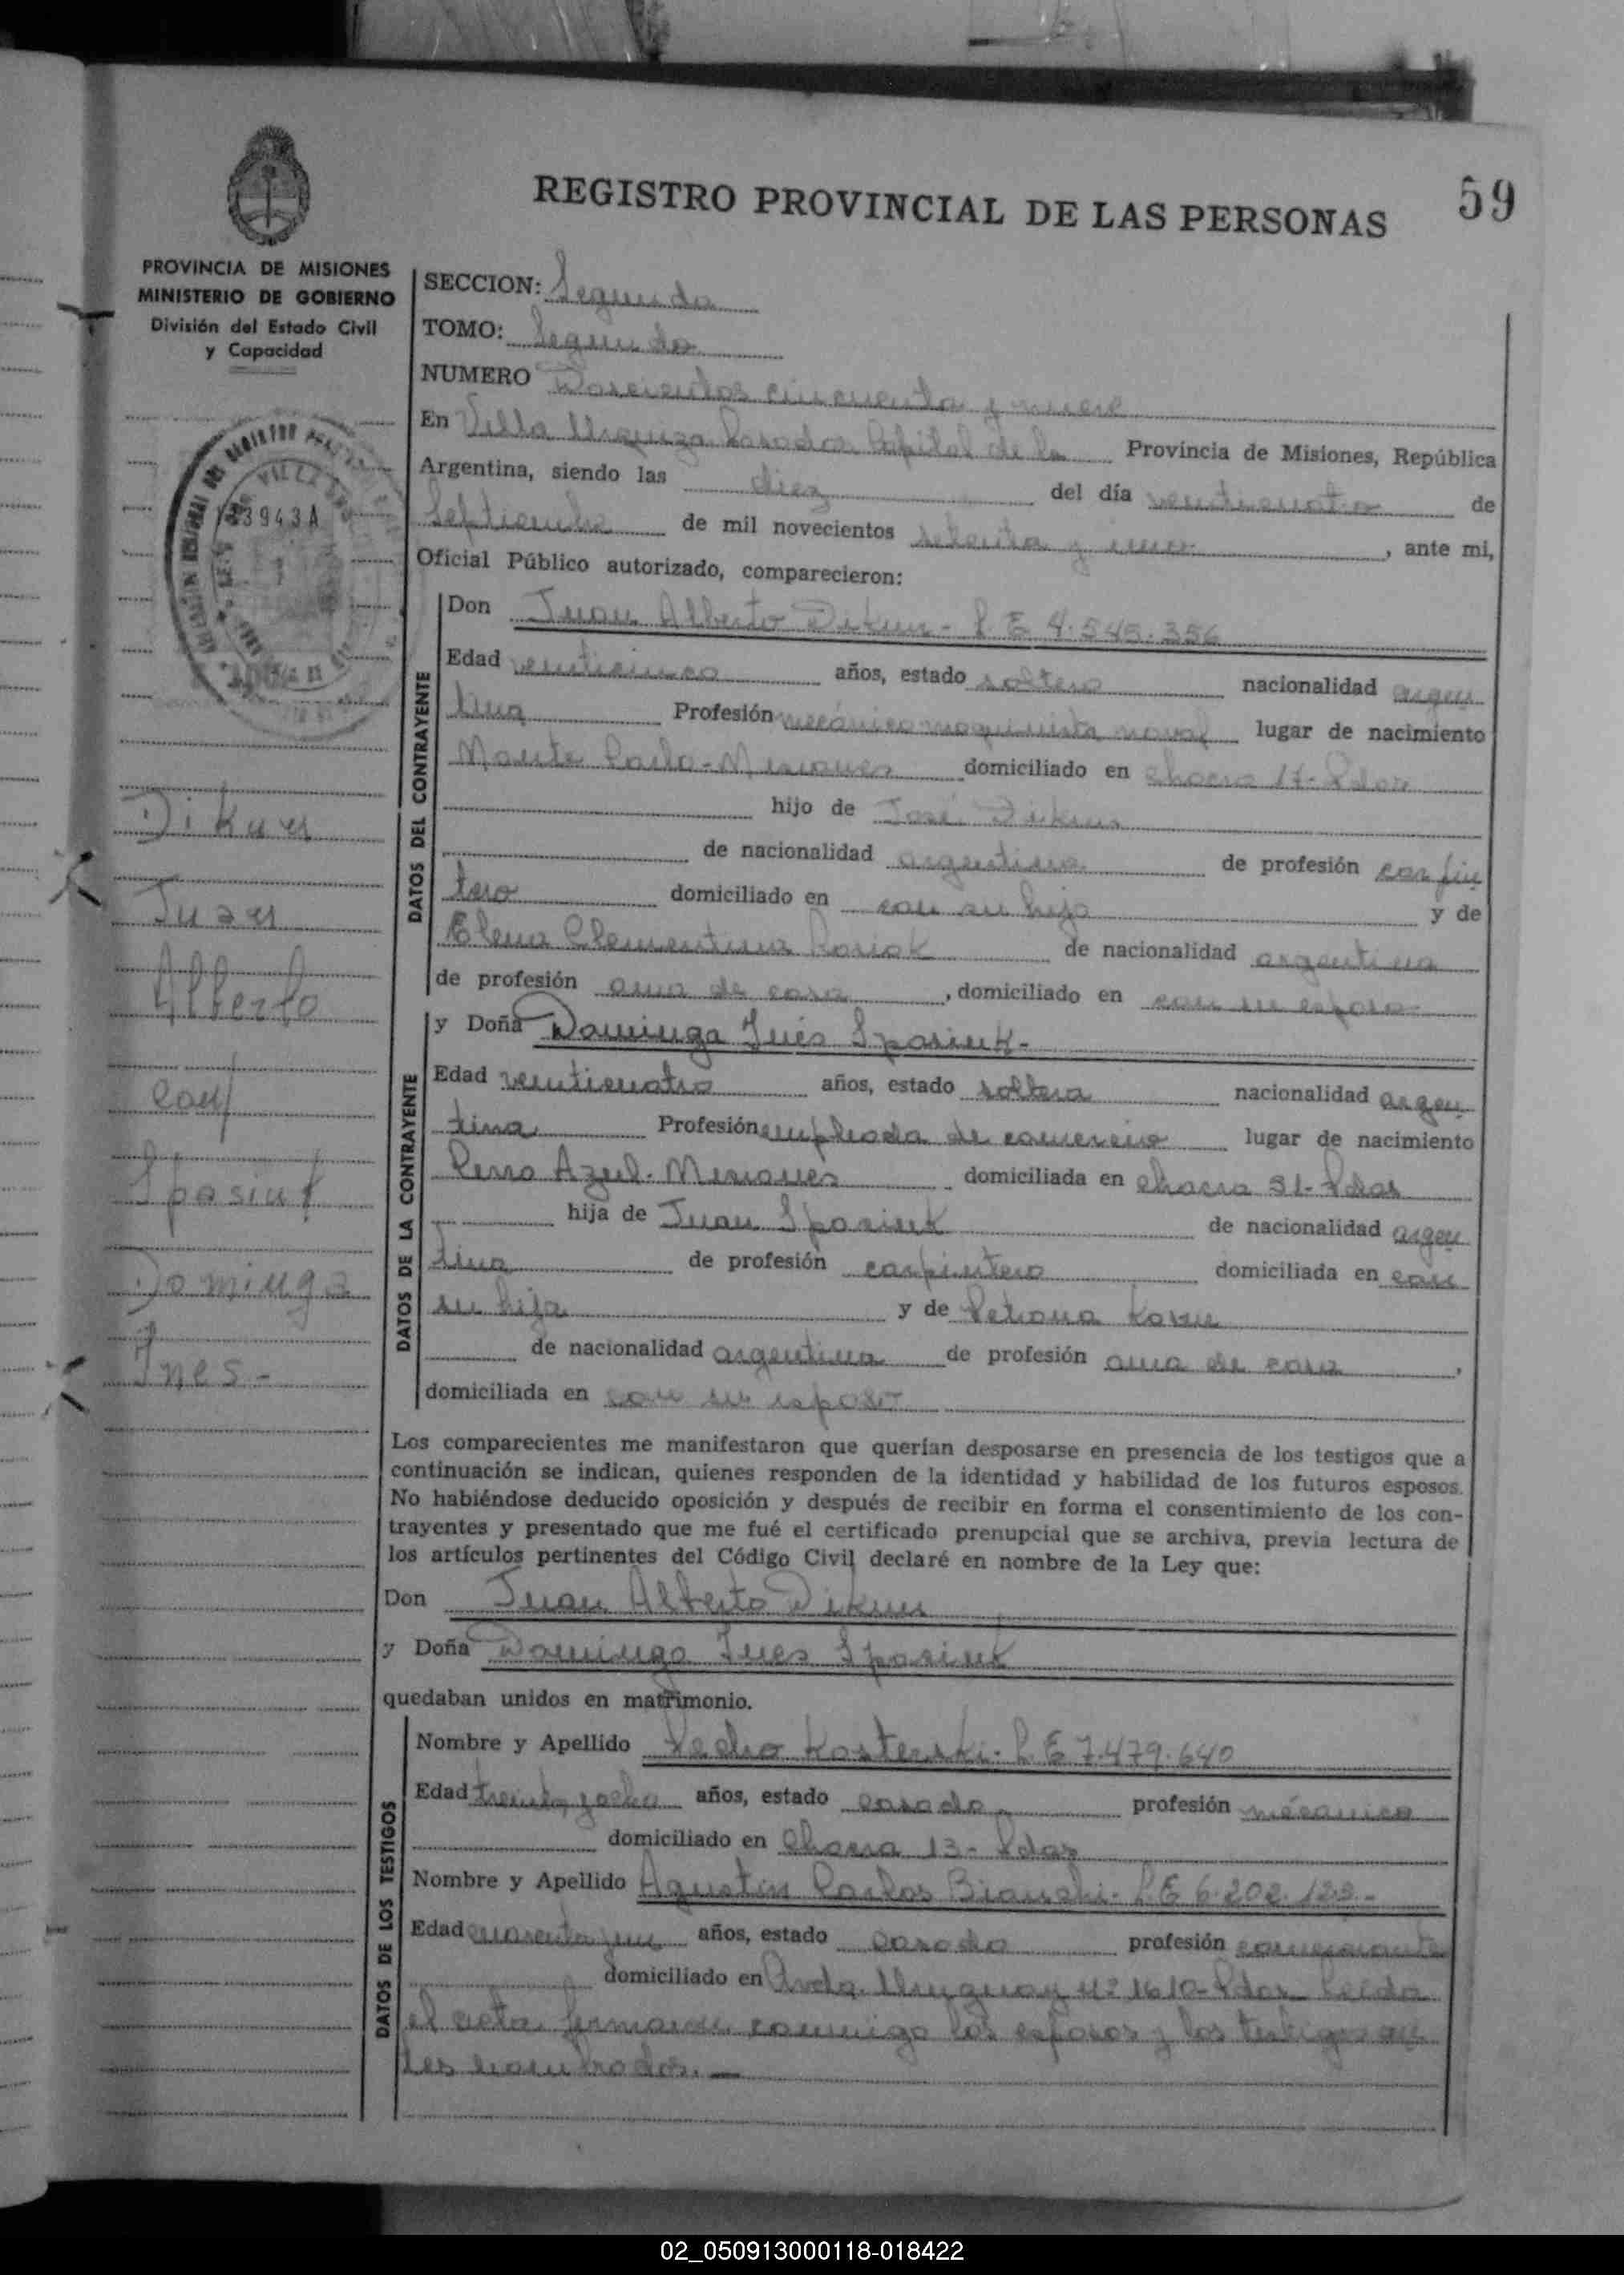 REGISTRO PROVINCIAL DE LAS PERSONAS
59
PROVINCIA DE MISIONES
MINISTERIO DE GOBIERNO
División del Estado Civil
y Capacidad
3943A
Dikun
Juan
Alberto
con/
Spasiuk
Dominga
Ines-
SECCION: Segunda
TOMO: Segundo
NUMERO Doscientos cincuenta y nueve
En Villa Urquiza Posadas Capital de la Provincia de Misiones, República
Argentina, siendo las diez del día veinticuatro de
Septiembre de mil novecientos setenta y uno, ante mi,
Oficial Público autorizado, comparecieron:
DATOS DEL CONTRAYENTE
Don Juan Alberto Dikun - L E 4.545.356
Edad veinticinco años, estado soltero nacionalidad argen
tina Profesión mecánico maquinista naval lugar de nacimiento
Monte Carlo-Misiones domiciliado en chacra 17-Pdas
hijo de José Dikun
de nacionalidad argentina de profesión carpin
tero domiciliado en con su hijo y de
Elena Clementina de nacionalidad argentina
de profesión ama de casa, domiciliado en con su esposo
DATOS DE LA CONTRAYENTE
y Doña Dominga Inés Spasiuk-
Edad veinticuatro años, estado soltera nacionalidad argen
tina Profesión empleada de comercio lugar de nacimiento
Cerro Azul-Misiones domiciliada en chacra 31-Pdas
hija de Juan Spasiuk de nacionalidad argen
tina de profesión carpintero domiciliada en con
su hija y de Petrona
de nacionalidad argentina de profesión ama de casa,
domiciliada en con su esposo
Los comparecientes me manifestaron que querían desposarse en presencia de los testigos que a
continuación se indican, quienes responden de la identidad y habilidad de los futuros esposos.
No habiéndose deducido oposición y después de recibir en forma el consentimiento de los con-
trayentes y presentado que me fué el certificado prenupcial que se archiva, previa lectura de
los artículos pertinentes del Código Civil declaré en nombre de la Ley que:
Don Juan Alberto Dikun
y Doña Dominga Ines Spasiuk
quedaban unidos en matrimonio.
DATOS DE LOS TESTIGOS
Nombre y Apellido Pedro Kosterski- L E 7.479.640
Edad treinta y ocho años, estado casado profesión mécanico
domiciliado en Chacra 13- Pdas
Nombre y Apellido Agustin Carlos Bianchi- L.E 6.202.123.-
Edad cuarenta y un años, estado casado profesión comerciante
domiciliado en Avda. Uruguay Nº 1610-Pdas Leida
el acta firmaron conmigo los esposos y los testigos an
tes nombrados.-
02_050913000118-018422